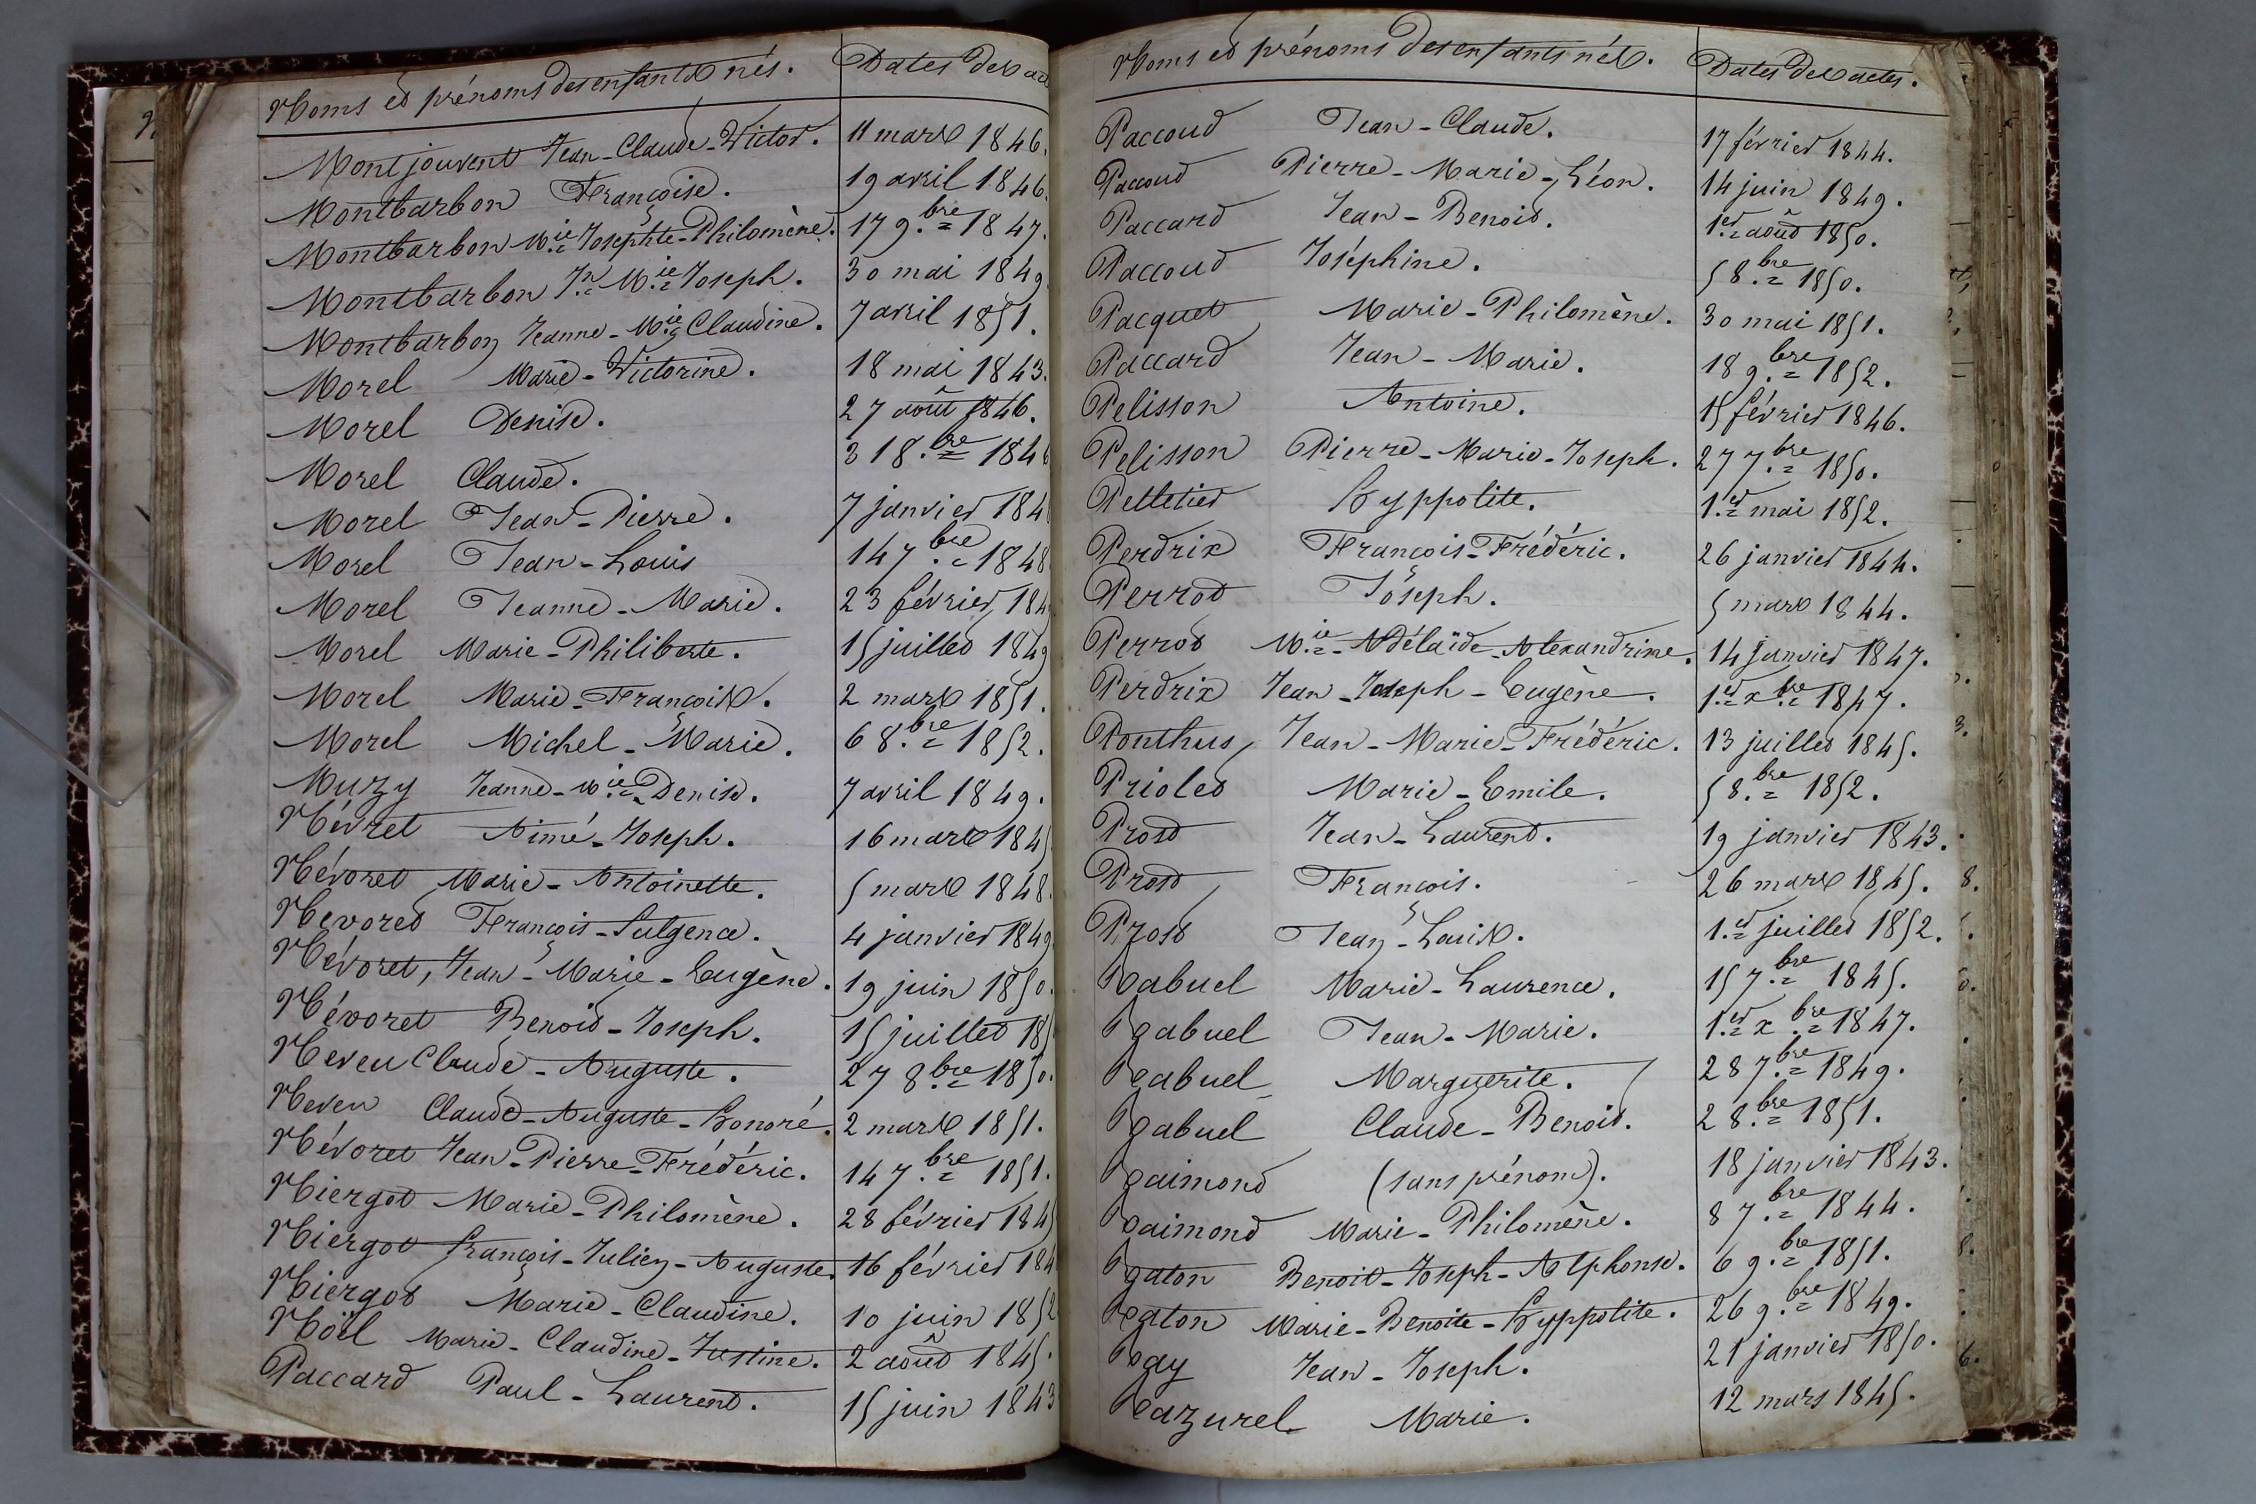 Noms et prénoms des enfants nés. Dates des ac
Montjouvent Jean-Claude-Victor. 11 mars 1846.
Montbarbon Françoise. 19 avril 1846.
Montbarbon M.ie Josephte-Philomène. 17 9.bre 1847.
Montbarbon J.n M.ie Joseph. 30 mai 1849
Montbarbon Jeanne-M.ie Claudine. 7 avril 1851.
Morel Marie-Victorine. 18 mai 1843.
Morel Denise. 27 août 1846.
Morel Claude. 31 8.bre 1846
Morel Jean-Pierre. 7 janvier 184
Morel Jean-Louis 14 7.bre 1848
Morel Jeanne-Marie. 23 février 184
Morel Marie-Philiberte. 15 juillet 1849
Morel Marie-François. 2 mars 1851.
Morel Michel-Marie. 6 8.bre 1852.
Muzy Jeanne-M.ie-Denise. 7 avril 1849.
Névret Aimé-Joseph. 16 mars 1845
Névoret Marie-Antoinette. 5 mars 1848.
Névoret François-Fulgence. 4 janvier 1849
Névoret, Jean-Marie-Eugène. 19 juin 1850.
Névoret Benoit-Joseph. 15 juillet 185
Neveu Claude-Auguste. 27 8.bre 1850.
Neveu Claude-Auguste-Honoré. 2 mars 1851.
Névoret Jean-Pierre-Frédéric. 14 7.bre 1851.
Niergot Marie-Philomène. 28 février 1845
Niergot François-Julien-Auguste. 16 février 184
Niergot Marie-Claudine. 10 juin 1852
Noël Marie-Claudine-Justine. 2 août 1845.
Paccard Paul-Laurent. 15 juin 1843
Noms et prénoms des enfants nés. Dates des actes.
Paccoud Jean-Claude. 17 février 1844.
Paccoud Pierre-Marie-Léon. 14 juin 1849.
Paccard Jean-Benoit. 1.er août 1850.
Paccoud Joséphine. 5 8.bre 1850.
Pacquet Marie-Philomène. 30 mai 1851.
Paccard Jean-Marie. 18 9.bre 1852.
Pelisson Antoine. 15 février 1846.
Pelisson Pierre-Marie-Joseph. 27 7.bre 1850.
Pelletier Hyppolite. 1.er mai 1852.
Perdrix François-Frédéric. 26 janvier 1844.
Perrot Joseph. 5 mars 1844.
Perrot M.ie-Adélaïde-Alexandrine. 14 janvier 1847.
Perdrix Jean-Joseph-Eugène. 1.er x.bre 1847.
Ponthus, Jean-Marie-Frédéric. 13 juillet 1845.
Priolet Marie-Emile. 5 8.bre 1852.
Prost Jean-Laurent. 19 janvier 1843.
Prost François. 26 mars 1845.
Prost Jean-Louis. 1.er juillet 1852.
Rabuel Marie-Laurence. 15 7.bre 1845.
Rabuel Jean-Marie. 1.er x.bre 1847.
Rabuel Marguerite. 28 7.bre 1849.
Rabuel Claude-Benoit. 2 8.bre 1851.
Raimond (sans prénom). 18 janvier 1843.
Raimond Marie-Philomène. 8 7.bre 1844.
Raton Benoit-Joseph-Alphonse. 6 9.bre 1851.
Raton Marie-Benoite-Hyppolite. 26 9.bre 1849.
Ray Jean-Joseph. 21 janvier 1850.
Razurel Marie. 12 mars 1845.